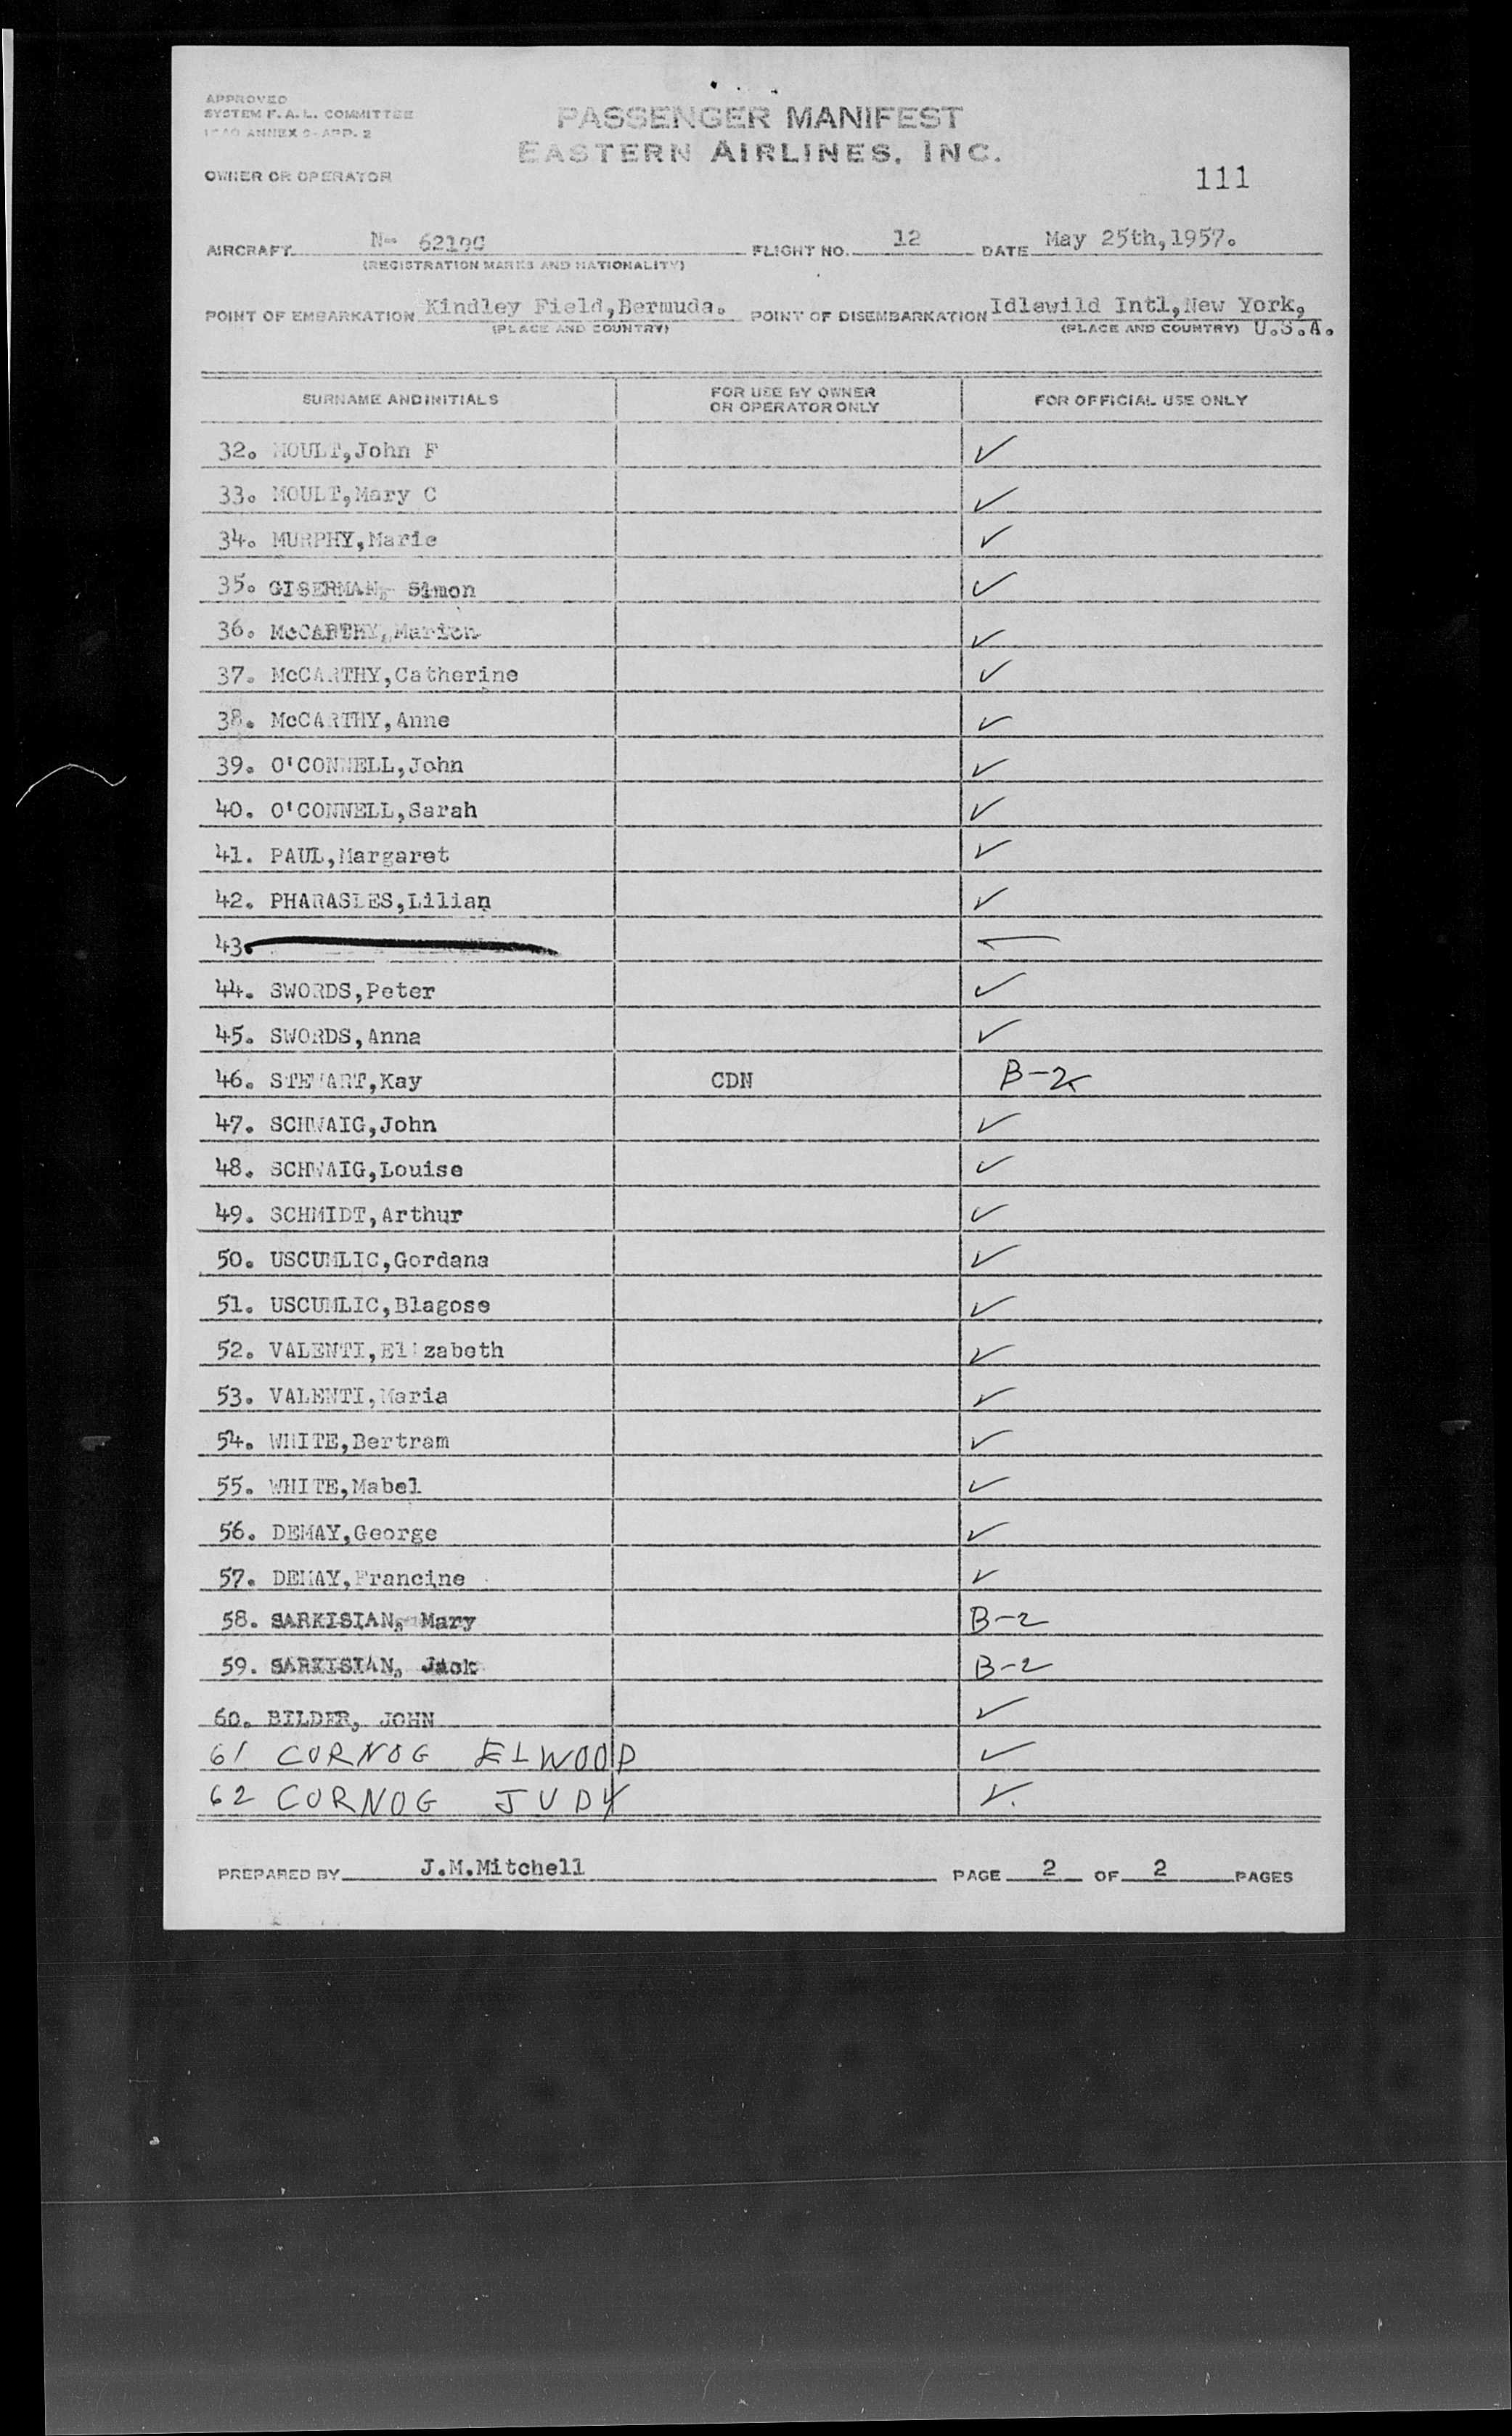 APPROVED
SYSTEM F. A. L. COMMITTEE
ICAO ANNEX 9-APP. 2
PASSENGER MANIFEST
EASTERN AIRLINES, INC.
OWNER OR OPERATOR
111
AIRCRAFT N- 6219C FLIGHT NO. 12 DATE May 25th,1957.
(REGISTRATION MARKS AND NATIONALITY)
POINT OF EMBARKATION Kindley Field,Bermuda. POINT OF DISEMBARKATION Idlewild Intl,New York,
(PLACE AND COUNTRY) (PLACE AND COUNTRY) U.S.A.
SURNAME AND INITIALS FOR USE BY OWNER OR OPERATOR ONLY FOR OFFICIAL USE ONLY
32. MOULT,John F ✓
33. MOULT,Mary C ✓
34. MURPHY,Marie ✓
35. GISERMAN, Simon ✓
36. McCARTHY,Marion ✓
37. McCARTHY,Catherine ✓
38. McCARTHY,Anne ✓
39. O'CONNELL,John ✓
40. O'CONNELL,Sarah ✓
41. PAUL,Margaret ✓
42. PHARASLES,Lilian ✓
43.
44. SWORDS,Peter ✓
45. SWORDS,Anna ✓
46. STEWART,Kay CDN B-2
47. SCHWAIG,John ✓
48. SCHWAIG,Louise ✓
49. SCHMIDT,Arthur ✓
50. USCUMLIC,Gordana ✓
51. USCUMLIC,Blagose ✓
52. VALENTI,Elizabeth ✓
53. VALENTI,Maria ✓
54. WHITE,Bertram ✓
55. WHITE,Mabel ✓
56. DEMAY,George ✓
57. DEMAY,Francine ✓
58. SARKISIAN, Mary B-2
59. SARKISIAN, Jack B-2
60. BILDER, JOHN ✓
61 CORNOG ELWOOD ✓
62 CORNOG JUDY ✓
PREPARED BY J.M.Mitchell PAGE 2 OF 2 PAGES